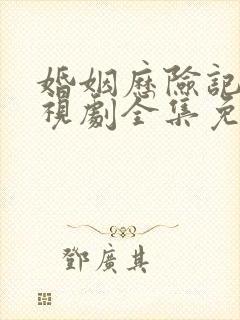 婚姻歷險記
視劇全集免
鄧廣其